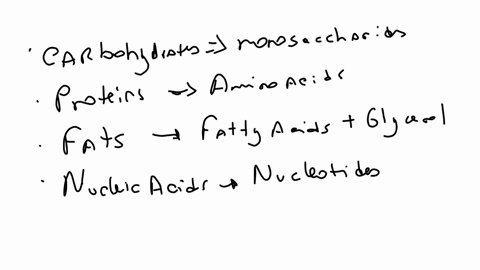 · Carbohydrates => monosaccharides
· Proteins -> Amino Acids
· Fats -> Fatty Acids + Glycerol
· Nucleic Acids -> Nucleotides